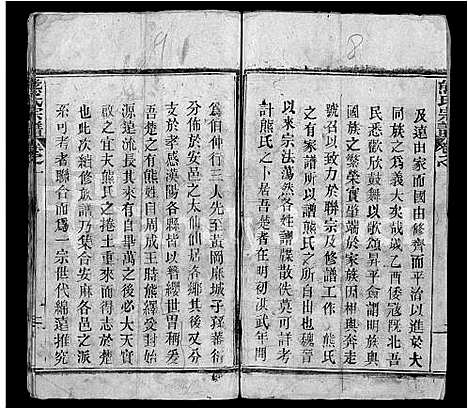 熊氏宗譜
及遠由家而國由修齊而平治以進於大
同族之為義大矣哉歲乙酉倭寇旣北吾
民悉歡欣鼓舞以歌頌昇平僉感明族與
國族之繁榮實肇端於家族因相與奔走
號召以致力於聯宗及修譜工作 熊氏
之有家譜所以譜熊氏之所自出也魏晉
以來宗法蕩然各姓譜牒散佚莫可詳考
計熊氏之卜居吾楚者在明初洪武年間
爲伯仲行三人先至黃岡麻城于驛蕃衍
分佈於安邑之大仙仙居各鄉其後又分
遷於孝感漢陽各縣皆以簪纓世冑稱者
楚之有熊姓自周成王時熊繹受封始
源遠流長其來有自畢萬之後必大天實
爲之此熊氏之捲土重來而得志於楚
也此次續修族譜乃集合安麻各邑之派
系可考者聯合而爲一宗世代綿遠推究
熊氏宗譜
8
9